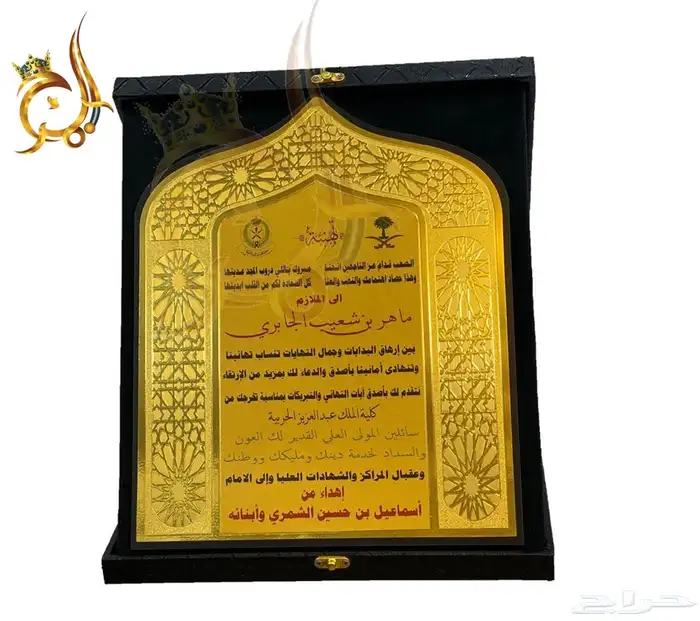 تهنئة
الصعب قدام عز الناجحين انحنا مبروك ياللي دروب المجد عديتها
وهذا حصاد اهتمامك والتعب والعنا كل السعادة لكم من القلب ابديتها
الى الملازم
ماهر بن شعيب الجابري
بين إرهاق البدايات وجمال النهايات تنساب تهانينا
وتتهادى أمانينا بأصدق والدعاء لك بمزيد من الإرتقاء
نتقدم لك بأصدق آيات التهاني والتبريكات بمناسبة تخرجك من
كلية الملك عبدالعزيز الحربية
سائلين المولى العلي القدير لك العون
والسداد لخدمة دينك ومليكك ووطنك
وعقبال المراكز والشهادات العليا وإلى الامام
إهداء من
أسماعيل بن حسين الشمري وأبنائه
حراج